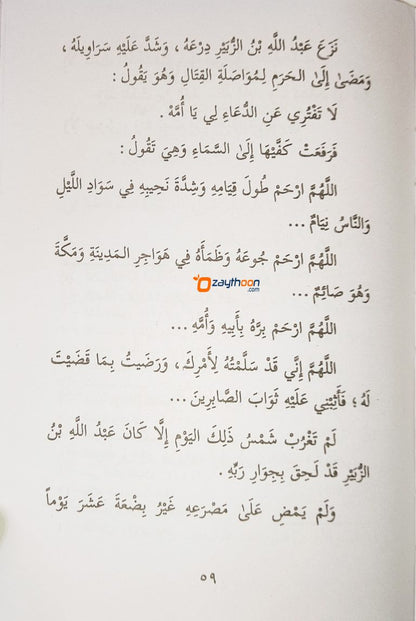 نَزَعَ عَبْدُ اللَّهِ بْنُ الزُّبَيْرِ دِرْعَهُ ، وَشَدَّ عَلَيْهِ سَرَاوِيلَهُ ،
وَمَضَىٰ إِلَىٰ الحَرَمِ لِمُوَاصَلَةِ القِتَالِ وَهُوَ يَقُولُ :
لَا تَفْتُرِي عَنِ الدُّعَاءِ لِي يَا أُمَّهْ .
فَرَفَعَتْ كَفَّيْهَا إِلَىٰ السَّمَاءِ وَهِيَ تَقُولُ :
اللَّهُمَّ ارْحَمْ طُولَ قِيَامِهِ وَشِدَّةَ نَحِيبِهِ فِي سَوَادِ اللَّيْلِ
وَالنَّاسُ نِيَامٌ ...
اللَّهُمَّ ارْحَمْ جُوعَهُ وَظَمَأَهُ فِي هَوَاجِرِ المَدِينَةِ وَمَكَّةَ
zaythoon
.com
وَهُوَ صَائِمٌ ...
اللَّهُمَّ ارْحَمْ بِرَّهُ بِأَبِيهِ وَأُمِّهِ ...
اللَّهُمَّ إِنِّي قَدْ سَلَّمْتُهُ لِأَمْرِكَ ، وَرَضِيتُ بِمَا قَضَيْتَ
لَهُ ؛ فَأَثِبْنِي عَلَيْهِ ثَوَابَ الصَّابِرِينَ ...
لَمْ تَغْرُبْ شَمْسُ ذَلِكَ اليَوْمِ إِلَّا كَانَ عَبْدُ اللَّهِ بْنُ
الزُّبَيْرِ قَدْ لَحِقَ بِجِوَارِ رَبِّهِ .
وَلَمْ يَمْضِ عَلَىٰ مَصْرَعِهِ غَيْرُ بِضْعَةَ عَشَرَ يَوْماً
٥٩